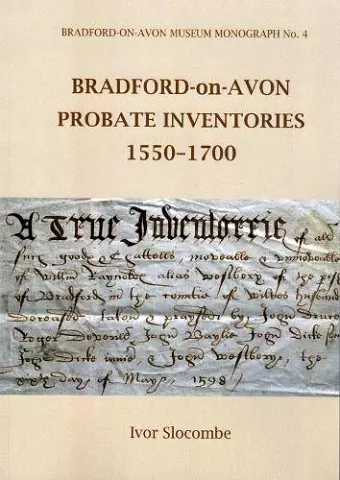 BRADFORD-ON-AVON MUSEUM MONOGRAPH No. 4
BRADFORD-on-AVON
PROBATE INVENTORIES
1550-1700
A True Inventorrie of all
such goods & Cattells moveable & unmoveable
of Willm Raynolds alias westbery of the
of Bradford in the Countie of Wiltes husband
Deceased taken & praysed by John
Roger Deverill John Baylie John Dicke
John Dicke & John westbery, the
day of May, 1598
Ivor Slocombe